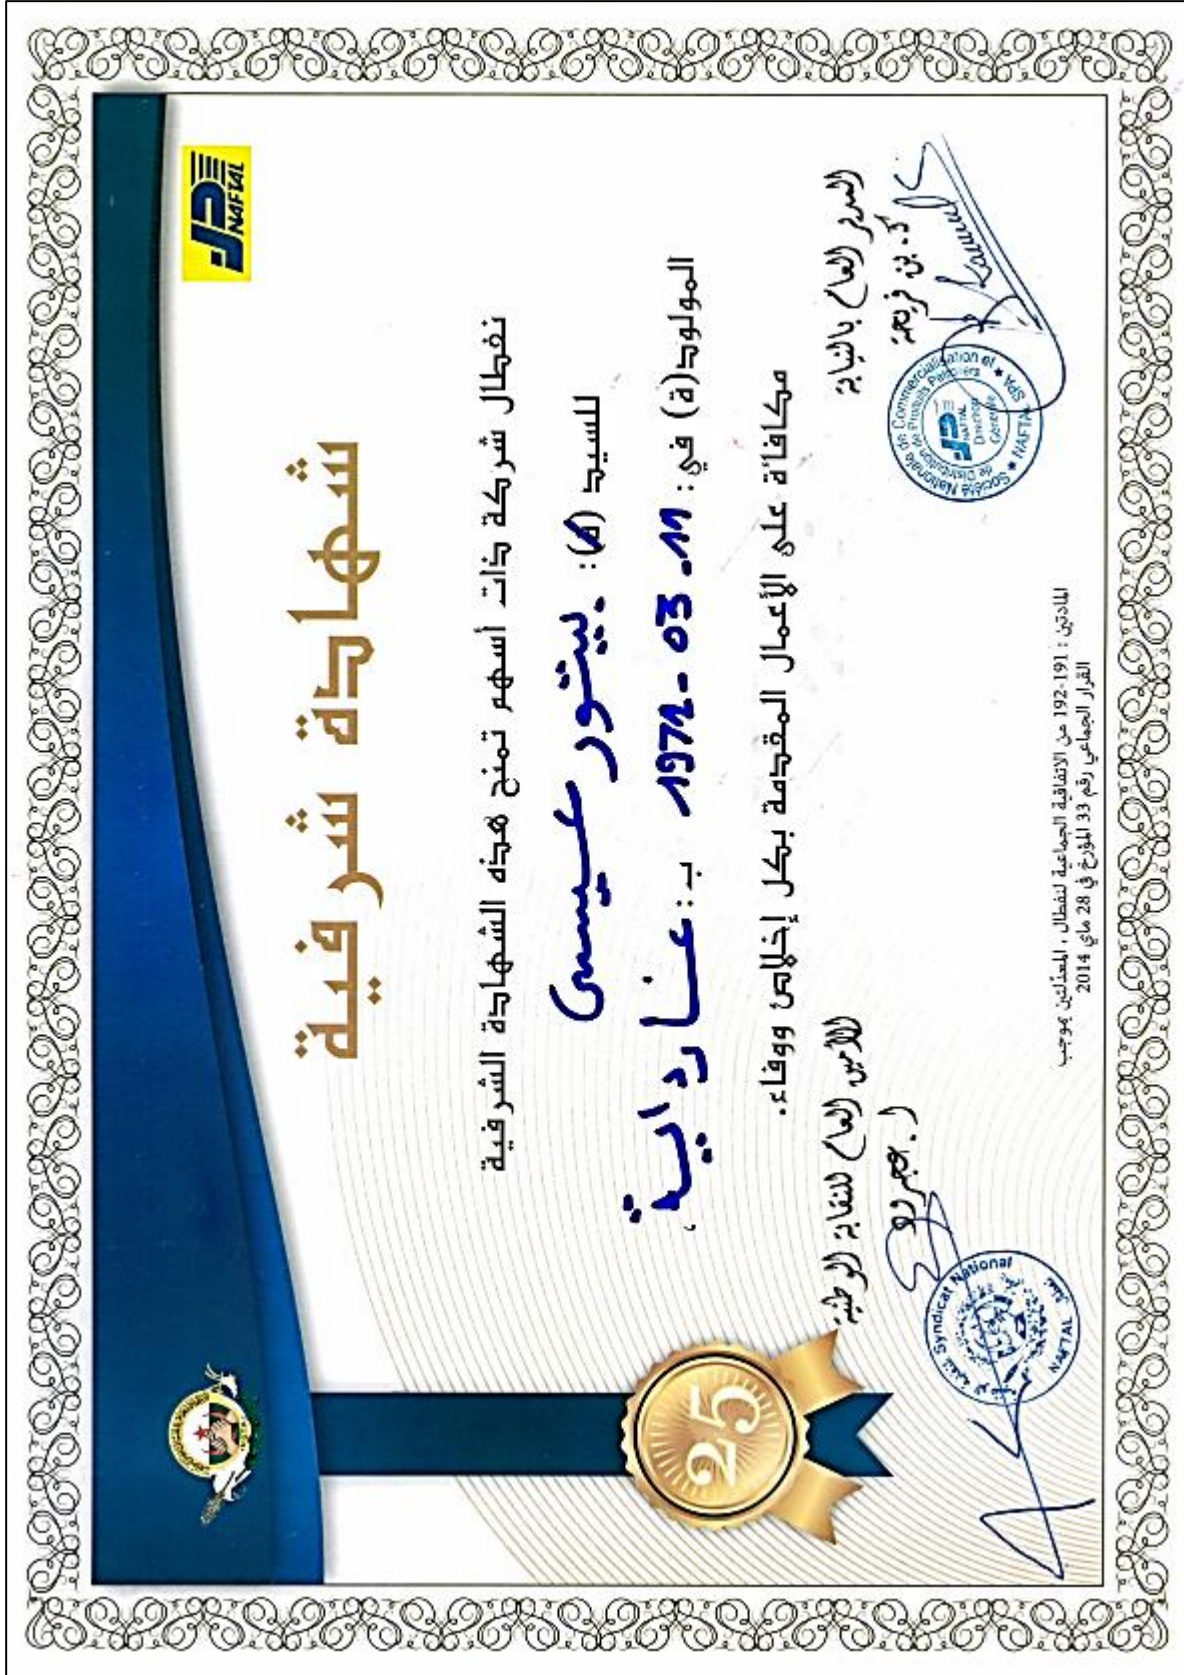 NAFTAL
شهادة شرفية
نفطال شركة ذات أسهم تمنح هذه الشهادة الشرفية
للسيد (ة): بيتور عيسى
المولود(ة) في: 11-03-1971 ب: غارداية
مكافأة على الأعمال المقدمة بكل إخلاص ووفاء.
المدير العام بالنيابة
ك. بن فريحة
Société Nationale de Commercialisation et
de Distribution de Produits Pétroliers
NAFTAL
Direction
Générale
NAFTAL SPA
الأمين العام للنقابة الوطنية
Syndicat National
NAFTAL
25
المادتين : 191-192 من الاتفاقية الجماعية لنفطال ، المعدلتين بموجب
القرار الجماعي رقم 33 المؤرخ في 28 ماي 2014